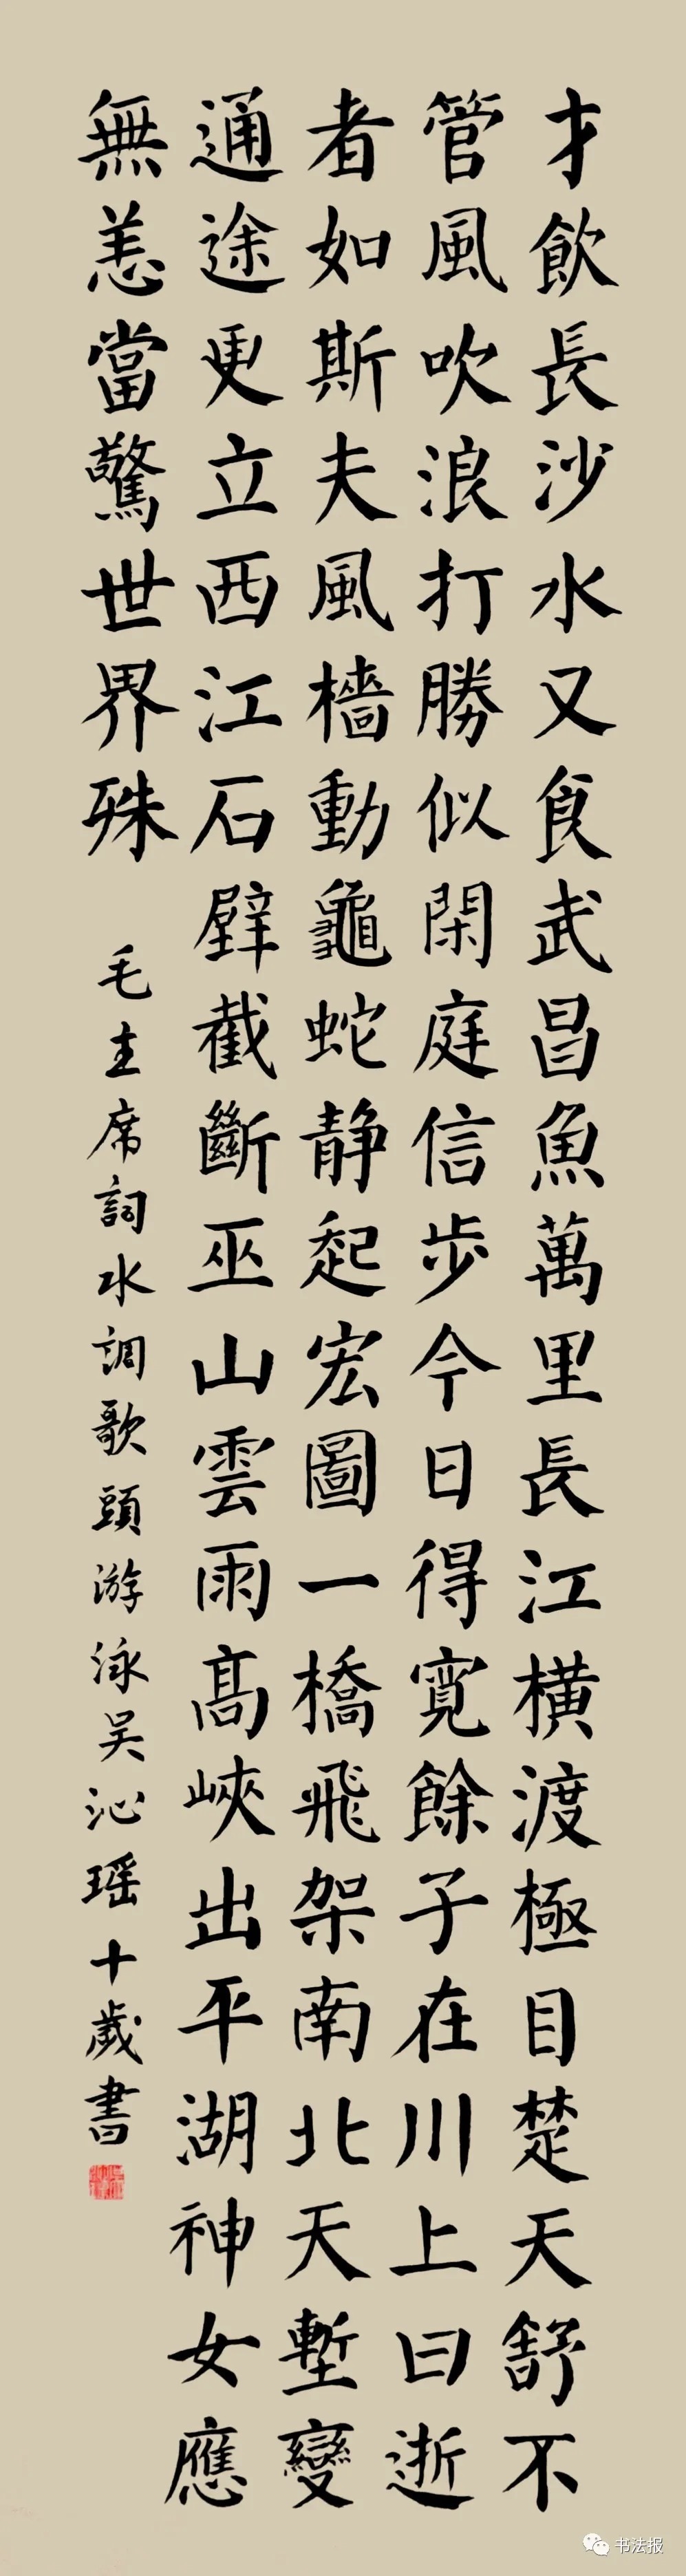 才飲長沙水又食武昌魚萬里長江橫渡極目楚天舒不
管風吹浪打勝似閑庭信步今日得寬餘子在川上曰逝
者如斯夫風檣動龜蛇静起宏圖一橋飛架南北天塹變
通途更立西江石壁截斷巫山雲雨高峽出平湖神女應
無恙當驚世界殊
毛主席詞水調歌頭游泳吴沁瑶十歲書
书法报